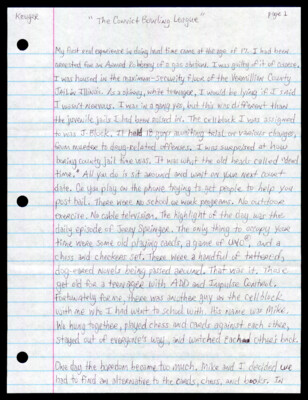 Kruger
"The Convict Bowling League"
page 1
My first real experience in doing real time came at the age of 17. I had been
arrested for an Armed Robbery of a gas station. I was guilty of it of course.
I was housed in the maximum-security floor of the Vermillion County
Jail in Illinois. As a skinny, white teenager, I would be lying if I said
I wasn't nervous. I was in a gang yes, but this was different than
the juvenile jails I had been raised in. The cellblock I was assigned
to was J-Block. It held 12 guys awaiting trial on various charges,
from murder to drug-related offenses. I was surprised at how
boring county jail time was. It was what the old heads called "dead
time." All you do is sit around and wait on your next court
date. Or you play on the phone trying to get people to help you
post bail. There were no school or work programs. No outdoor
exercise. No cable television. The highlight of the day was the
daily episode of Jenny Springer. The only thing to occupy your
time were some old playing cards, a game of UNO, and a
chess and checkers set. There were a handful of tattered,
dog-eared novels being passed around. That was it. Things
get old for a teenager with ADD and Impulse Control.
Fortunately for me, there was another guy in the cellblock
with me who I had went to school with. His name was Mike.
We hung together, played chess and cards against each other,
stayed out of everyone's way, and watched each other's back.
One day the boredom became too much. Mike and I decided we
had to find an alternative to the cards, chess, and books. In